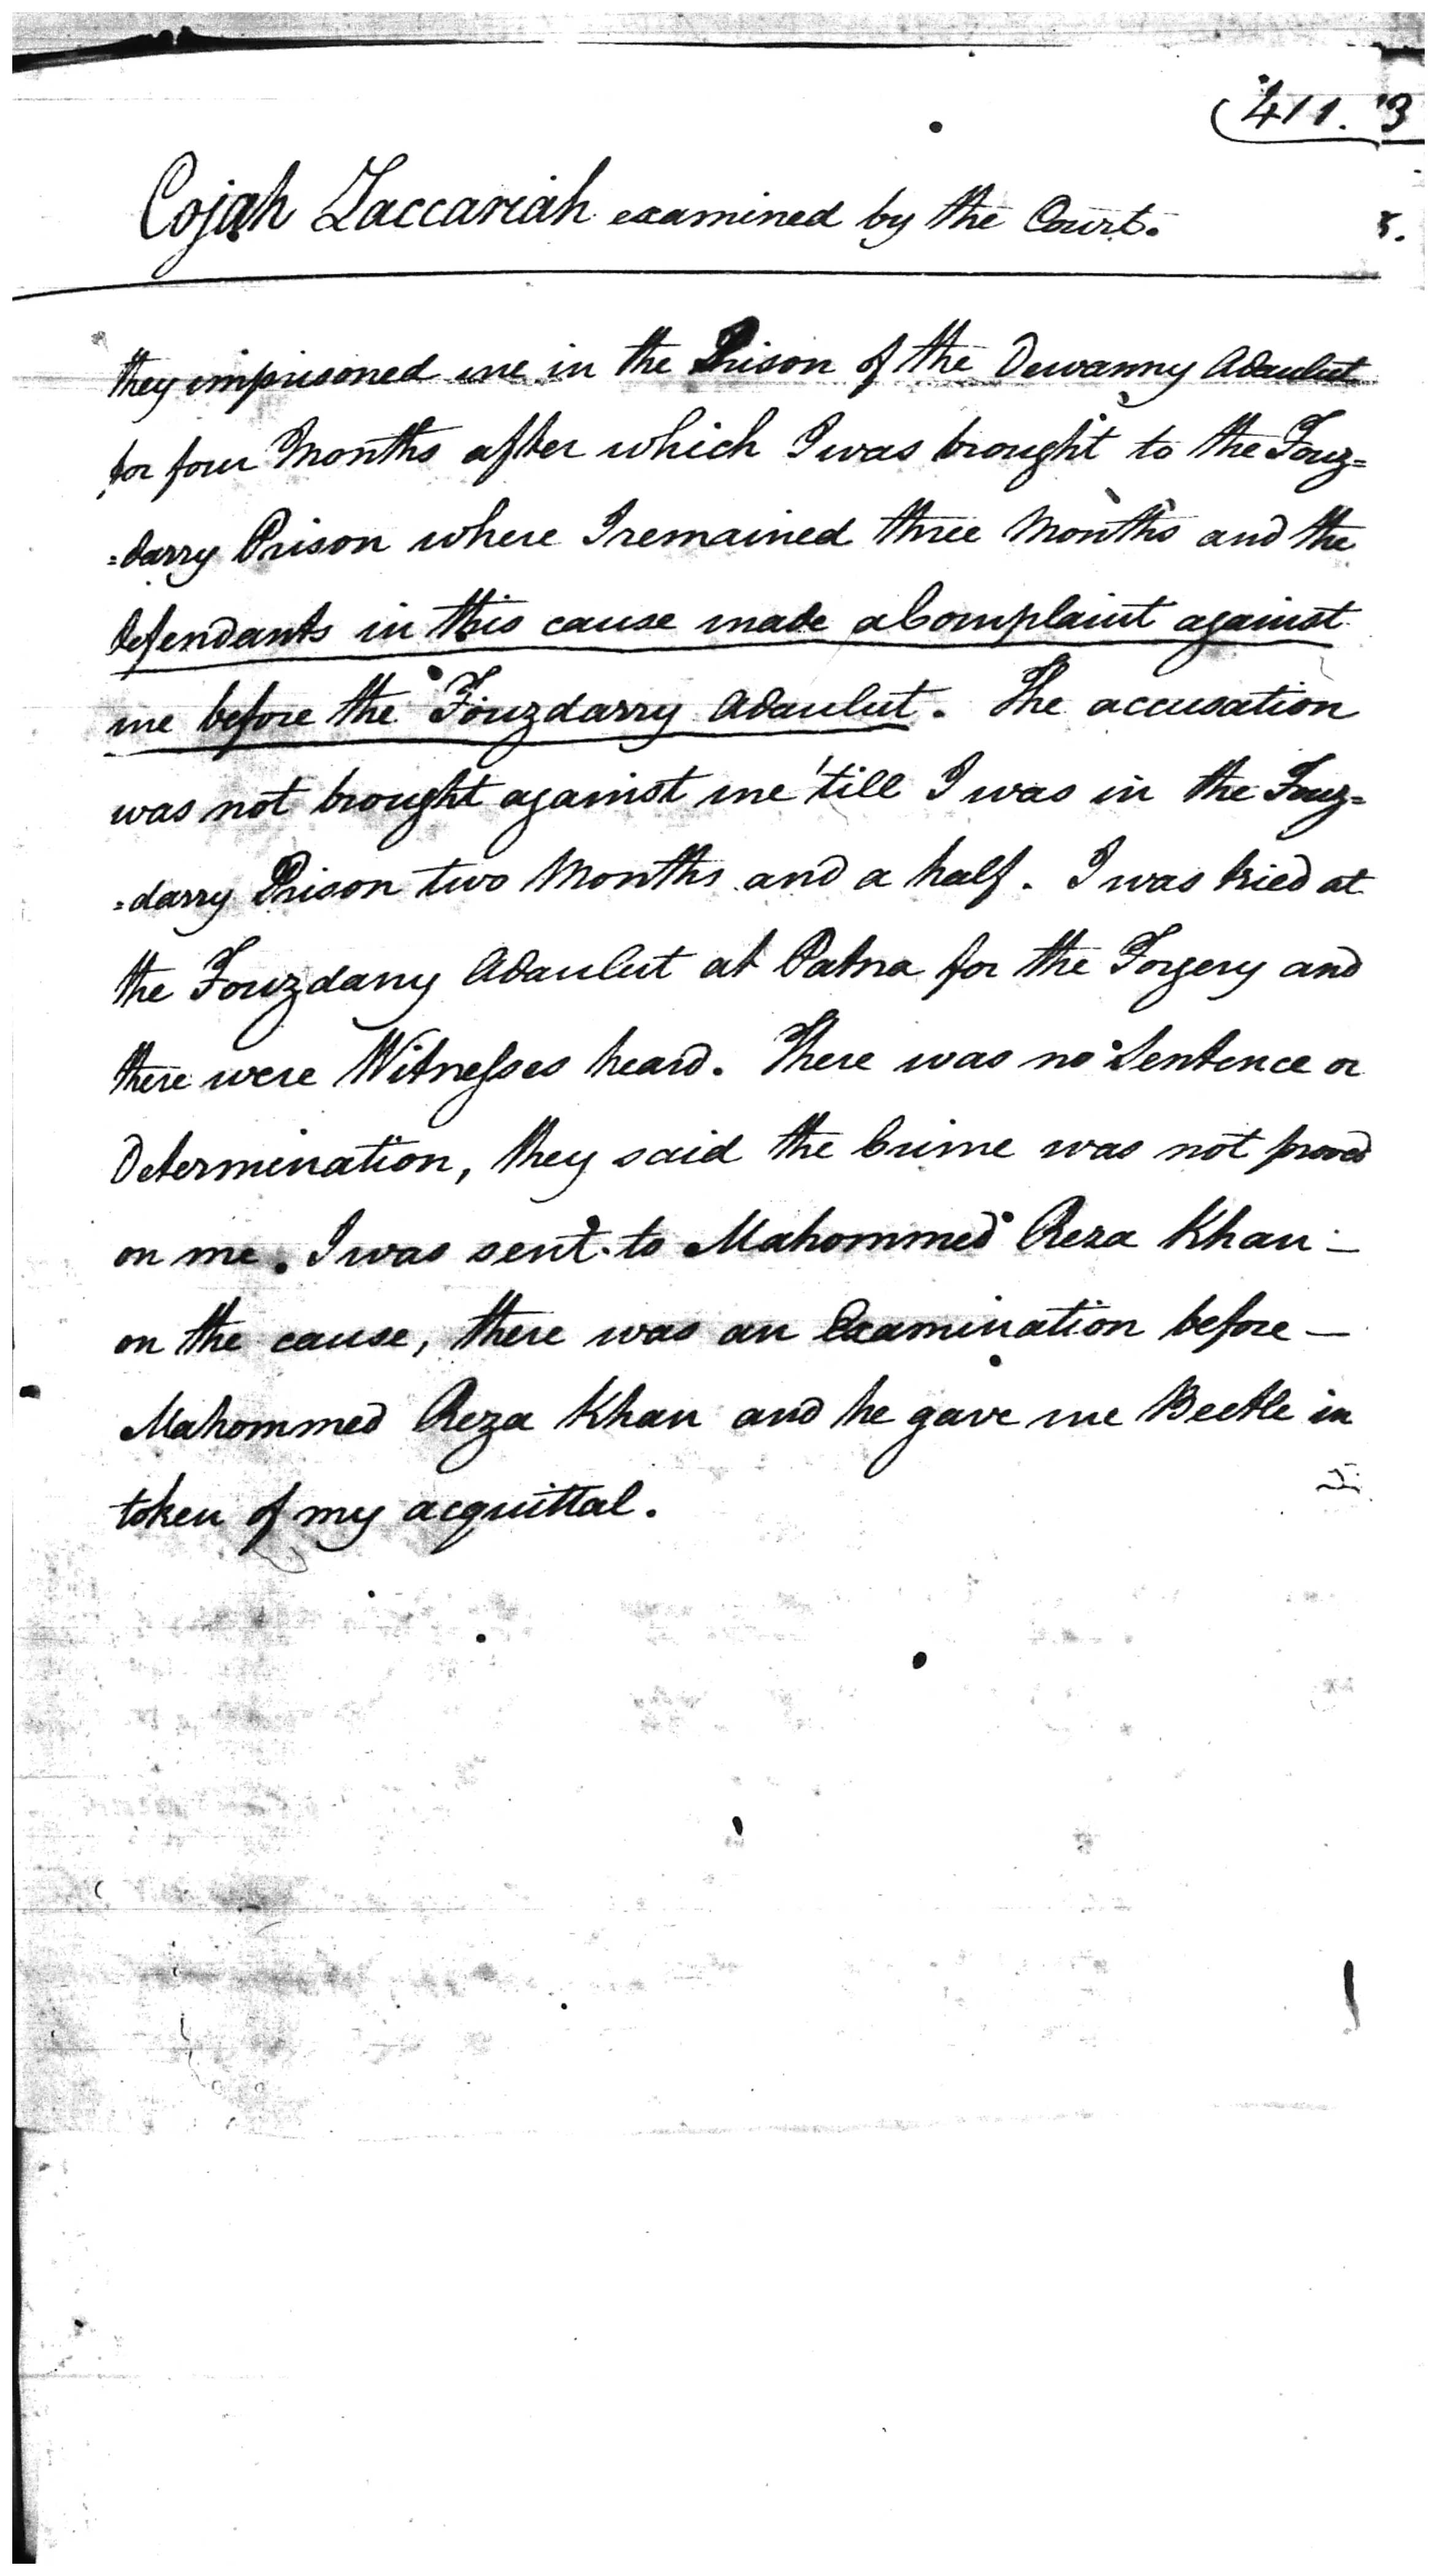 411.
Cojah Zaccariah examined by the Court.
they imprisoned me in the Prison of the Dewanny Adaulut
for four Months after which I was brought to the Fouz=
=darry Prison where I remained three Months and the
defendants in this cause made a Complaint against
me before the Fouzdarry Adaulut. The accusation
was not brought against me 'till I was in the Fouz=
=darry Prison two Months and a half. I was tried at
the Fouzdarry Adaulut at Patna for the Forgery and
there were Witnesses heard. There was no Sentence or
Determination, they said the Crime was not proved
on me. I was sent to Mahommed Reza Khan –
on the cause, there was an Examination before –
Mahommed Reza Khan and he gave me Beetle in
token of my acquittal.